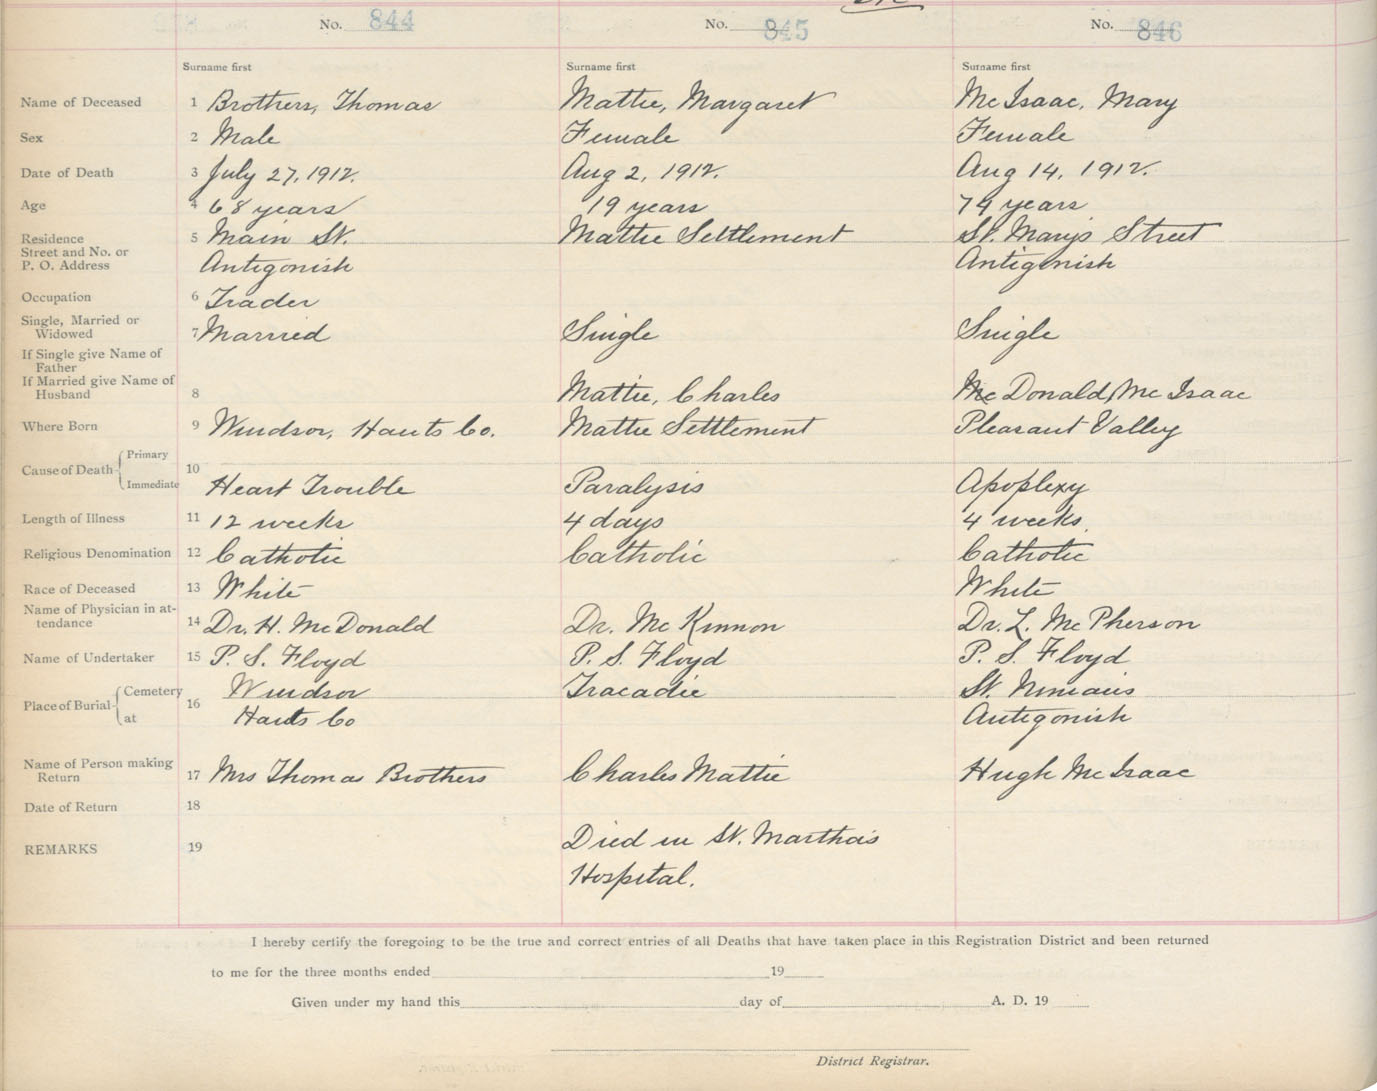 No. 844 No. 845 No. 846
Surname first Surname first Surname first
Name of Deceased 1 Brothers, Thomas Mattie, Margaret McIsaac, Mary
Sex 2 Male Female Female
Date of Death 3 July 27, 1912. Aug 2, 1912. Aug 14, 1912.
Age 4 68 years 19 years 74 years
Residence 5 Main St. Mattie Settlement St. Mary's Street
Street and No. or
P. O. Address Antigonish Antigonish
Occupation 6 Trader
Single, Married or
Widowed 7 Married Single Single
If Single give Name of
Father
If Married give Name of
Husband 8 Mattie, Charles McDonald, McIsaac
Where Born 9 Windsor, Hants Co. Mattie Settlement Pleasant Valley
Cause of Death Primary 10
Immediate Heart Trouble Paralysis Apoplexy
Length of Illness 11 12 weeks 4 days 4 weeks.
Religious Denomination 12 Catholic Catholic Catholic
Race of Deceased 13 White White
Name of Physician in at-
tendance 14 Dr. H. McDonald Dr. McKinnon Dr. L. McPherson
Name of Undertaker 15 P. S. Floyd P. S. Floyd P. S. Floyd
Place of Burial Cemetery 16 Windsor Tracadie St. Ninians
at Hants Co Antigonish
Name of Person making
Return 17 Mrs Thomas Brothers Charles Mattie Hugh McIsaac
Date of Return 18
REMARKS 19 Died in St. Martha's
Hospital.
I hereby certify the foregoing to be the true and correct entries of all Deaths that have taken place in this Registration District and been returned
to me for the three months ended 19
Given under my hand this day of A. D. 19
District Registrar.